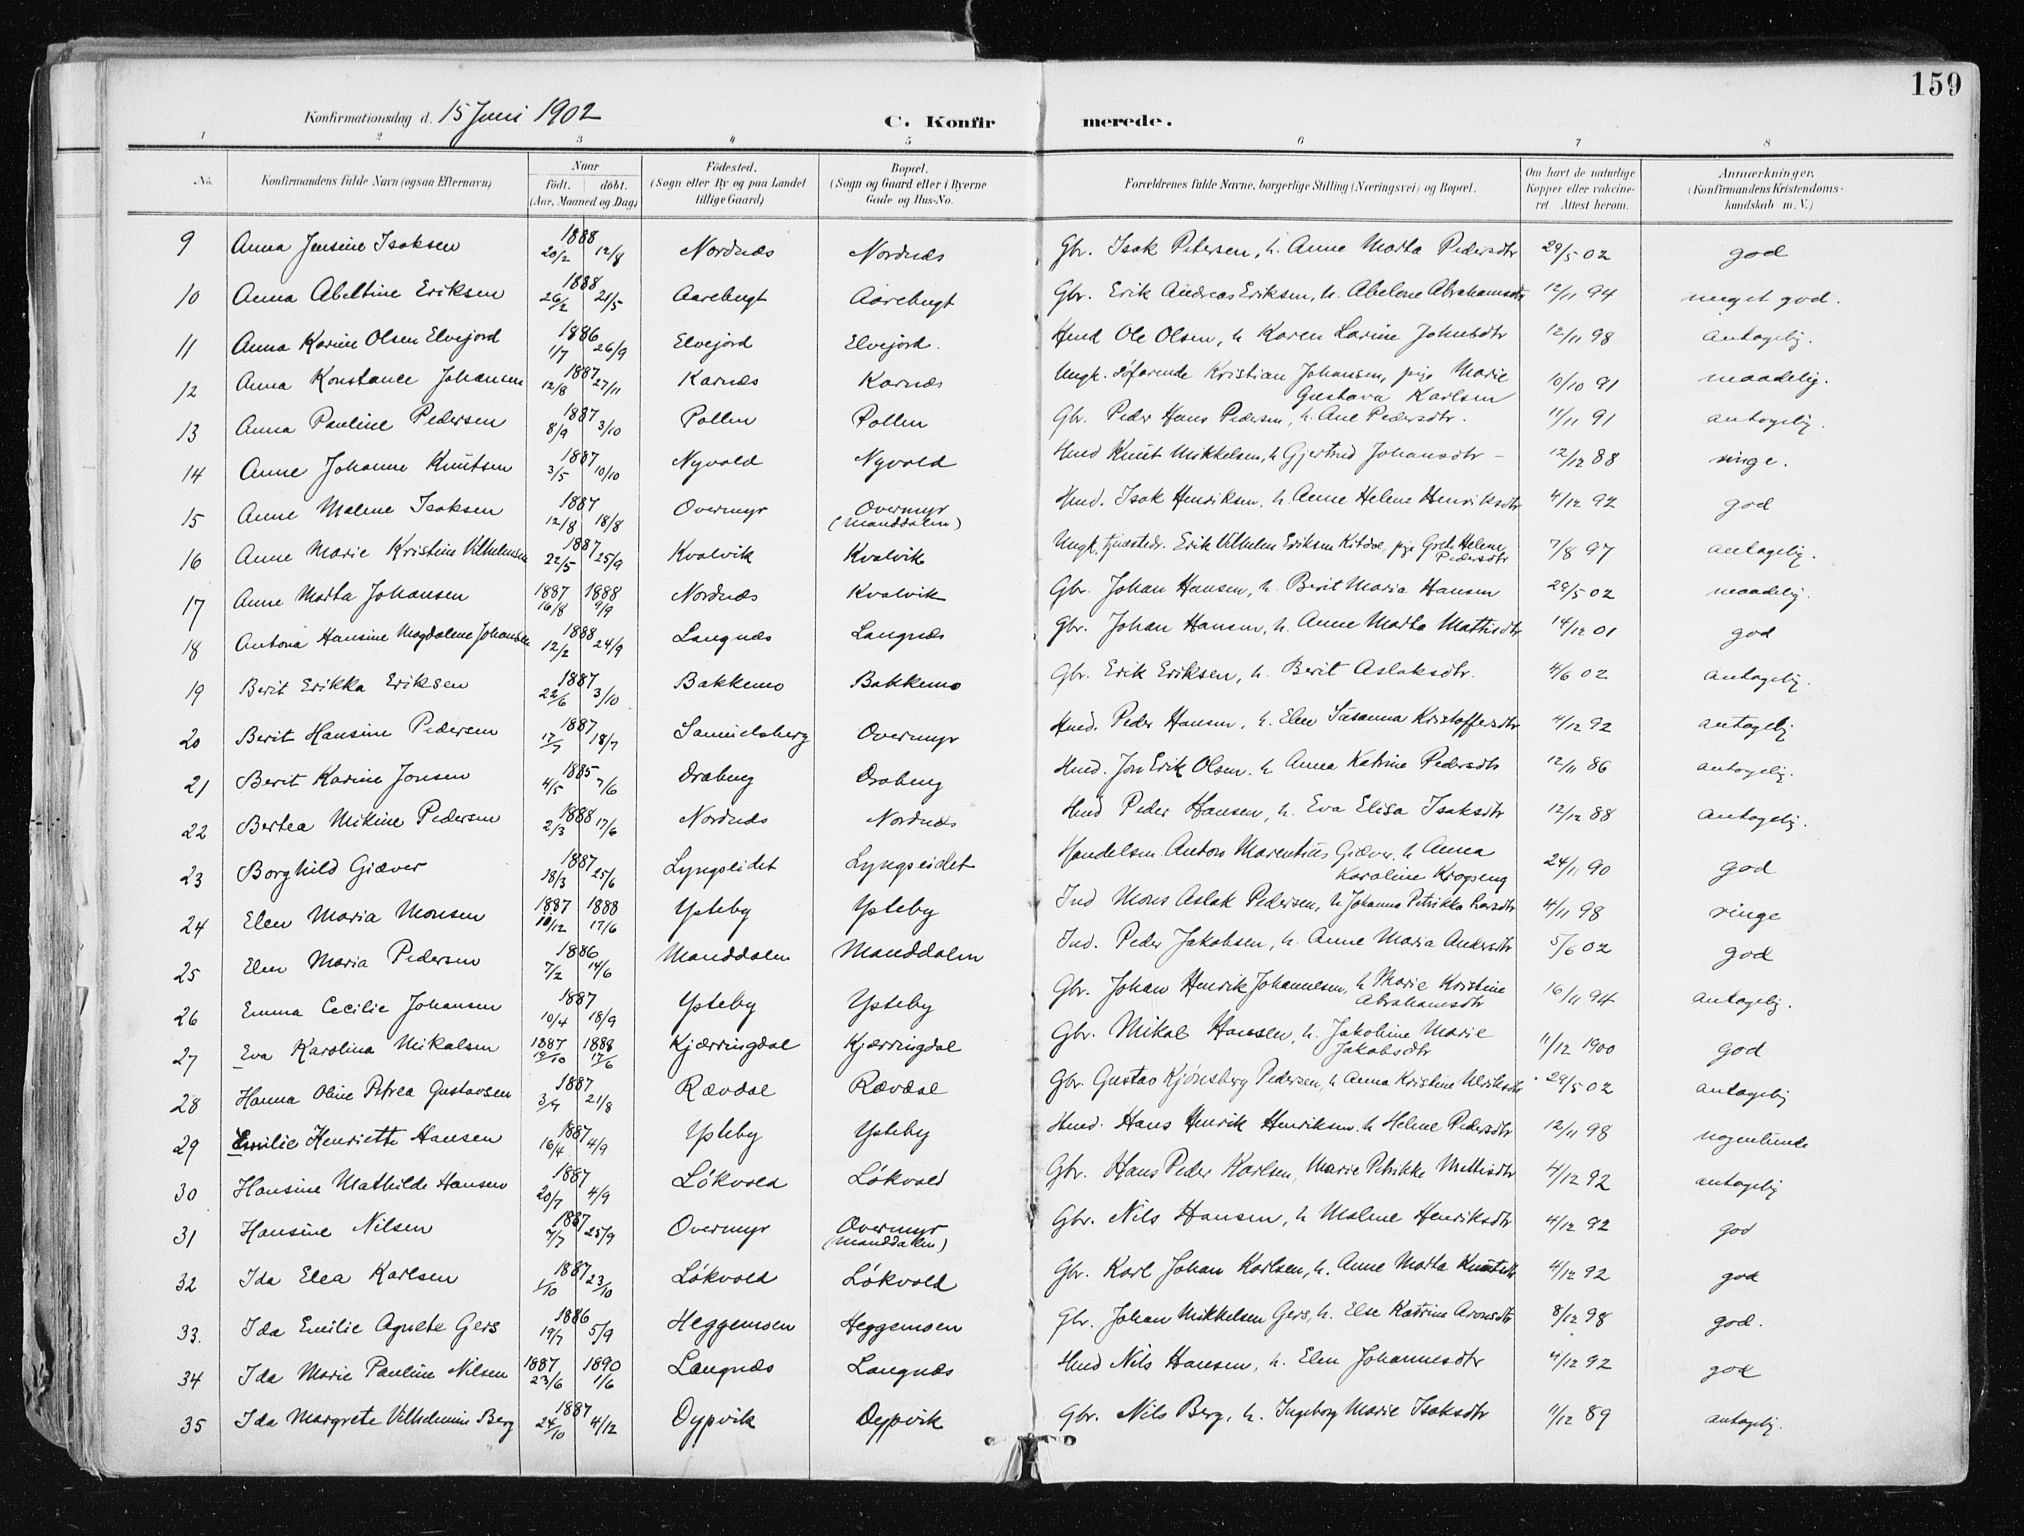 159
Konfirmationsdag d. 15 Juni 1902 C. Konfirmerede.
1 2 3 4 5 6 7 8
No. Konfirmandens fulde Navn (ogsaa Efternavn) Naar født. døbt. (Aar, Maaned og Dag) Fødested. (Sogn eller By og paa Landet tillige Gaard) Bopæl. (Sogn og Gaard eller i Byerne Gade og Hus-No. Forældrenes fulde Navne, borgerlige Stilling (Næringsvei) og Bopæl. Om havt de naturlige Kopper eller vaccineret Attest herom. Anmærkninger. (Konfirmandens Kristendomskundskab m. V.)
9 Anna Jensine Isaksen 1888 20/2 12/8 Nordnæs Nordnæs Gbr. Isak Petersen, h. Anne Marta Pedersdtr 29/5 02 god
10 Anna Abeltine Eriksen 1888 26/2 21/5 Aarebugt Aarebugt Gbr. Erik Andreas Eriksen, h. Abelone Abrahamsdtr 12/11 94 meget god.
11 Anna Karine Olsen Elvejord 1886 1/7 26/9 Elvejord Elvejord. Hmd Ole Olsen, h Karen Larine Johnsdtr 12/11 98 antagelig.
12 Anna Konstance Johansen 1887 12/8 27/11 Karnæs Karnæs Ungk. søfarende Kristian Johansen, pige Marie Gustava Karlsen 10/10 91 maadelig.
13 Anna Pauline Pedersen 1887 8/9 3/10 Pollen Pollen Gbr. Peder Hans Pedersen, h. Ane Pedersdtr. 11/11 91 antagelig.
14 Anne Johanne Knutsen 1887 3/5 10/10 Nyvold Nyvold Hmd Knut Mikkelsen, h Gjertrud Johansdtr – 12/12 88 ringe.
15 Anne Malene Isaksen 1887 12/8 18/8 Overmyr Overmyr (Manddalen) Hmd. Isak Henriksen, h. Anne Helene Henriksdtr 4/12 92 god
16 Anne Marie Kristine Vilhelmsen 1887 22/5 25/9 Kvalvik Kvalvik Ungk. tjenestedr. Erik Vilhelm Eriksen Kitdal, pige Grete Helene Pedersdtr 7/8 97 antagelig.
17 Anne Marta Johansen 1887 16/8 1888 9/9 Nordnæs Kvalvik Gbr. Johan Hansen, h. Berit Maria Hansen 29/5 02 maadelig.
18 Antona Hansine Magdalene Johansen 1888 12/2 24/9 Langnæs Langnæs Gbr. Johan Hansen, h. Anne Marta Mathisdtr 14/12 01 god
19 Berit Erikka Eriksen 1887 22/6 3/10 Bakkemo Bakkemo Gbr. Erik Eriksen, h. Berit Aslaksdtr. 4/6 02 antagelig.
20 Berit Hansine Pedersen 1887 17/7 18/7 Samuelsberg Overmyr Hmd. Peder Hansen, h. Elen Susanna Kristoffersdtr 4/12 92 antagelig
21 Berit Karine Jonsen 1885 4/5 7/6 Drabeng Drabeng Hmd. Jon Erik Olsen. h Anna Katrine Pedersdtr 12/11 86 antagelig.
22 Bertea Mikine Pedersen 1888 2/3 17/6 Nordnæs Nordnæs Hmd Peder Hansen, h. Eva Elisa Isaksdtr 12/12 88 antagelig.
23 Borghild Giæver 1887 18/3 25/6 Lyngseidet Lyngseidet Handelsm Anton Marentius Giæver. h Anna Karoline Kropseng 24/11 90 god
24 Elen Maria Monsen 1887 10/12 1888 17/6 Ysteby Ysteby Ind Mons Aslak Pedersen, h Johanna Petrikka Larsdtr 4/11 98 ringe
25 Elen Maria Pedersen 1886 7/2 14/6 Manddalen Manddalen Ind. Peder Jakobsen, h. Anne Maria Andersdtr 5/6 02 god
26 Emma Cecilie Johansen 1887 10/4 18/9 Ysteby Ysteby Gbr. Johan Henrik Johannesen, h Marie Kristine Abrahamsdtr 16/11 94 antagelig.
27 Eva Karolina Mikalsen 1887 19/10 1888 17/6 Kjærringdal Kjærringdal Gbr. Mikal Hansen, h. Jakobine Marie Jakobsdtr 11/12 1900 god
28 Hanna Oline Petrea Gustavsen 1887 3/7 21/8 Rævdal Rævdal Gbr. Gustav Kjønsberg Pedersen, h Anna Kristine Ulriksdtr 29/5 02 antagelig
29 Emilie Henriette Hansen 1887 16/4 4/9 Ysteby Ysteby Hmd. Hans Henrik Henriksen. h Helene Pedersdtr 12/11 98 nogenlunde
30 Hansine Mathilde Hansen 1887 20/7 4/9 Løkvold Løkvold Gbr. Hans Peder Karlsen, Marie Petrikke Mathisdtr 4/12 92 antagelig
31 Hansine Nilsen 1887 7/7 25/9 Overmyr Overmyr (Manddalen) Gbr. Nils Hansen, h Malene Henriksdtr 4/12 92 god
32 Ida Elea Karlsen 1887 1/10 23/10 Løkvold Løkvold Gbr. Karl Johan Karlsen, h. Anne Marta Knutsdtr 4/12 92 god
33. Ida Emilie Agnete Gers 1886 19/7 5/9 Heggemoen Heggemoen Gbr. Johan Mikkelsen Gers, h. Else Katrine Aronsdtr 8/12 98 god.
34 Ida Marie Pauline Nilsen 1887 23/6 1890 1/6 Langnæs Langnæs Hmd Nils Hansen, h. Elen Johannesdtr 4/12 92 god
35 Ida Margrete Vilhelmine Berg 1887 24/10 4/12 Dypvik Dypvik Gbr. Nils Berg, h. Ingeborg Marie Isaksdtr 11/12 89 antagelig.